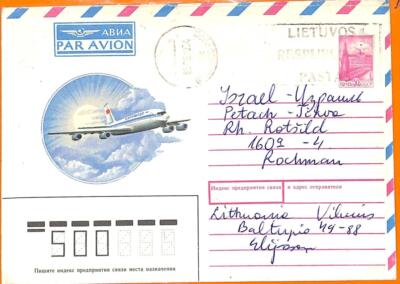 АВИА
PAR AVION
LIETUVOS
RESPUBLIKOS
PAŠTAS
Israel - Израиль
Petach-Tikva
Rh. Rotšild
160a -4
Rochman
Индекс предприятия связи и адрес отправителя
Lithuania Vilnius
Baltupio 49-88
500
Пишите индекс предприятия связи места назначения